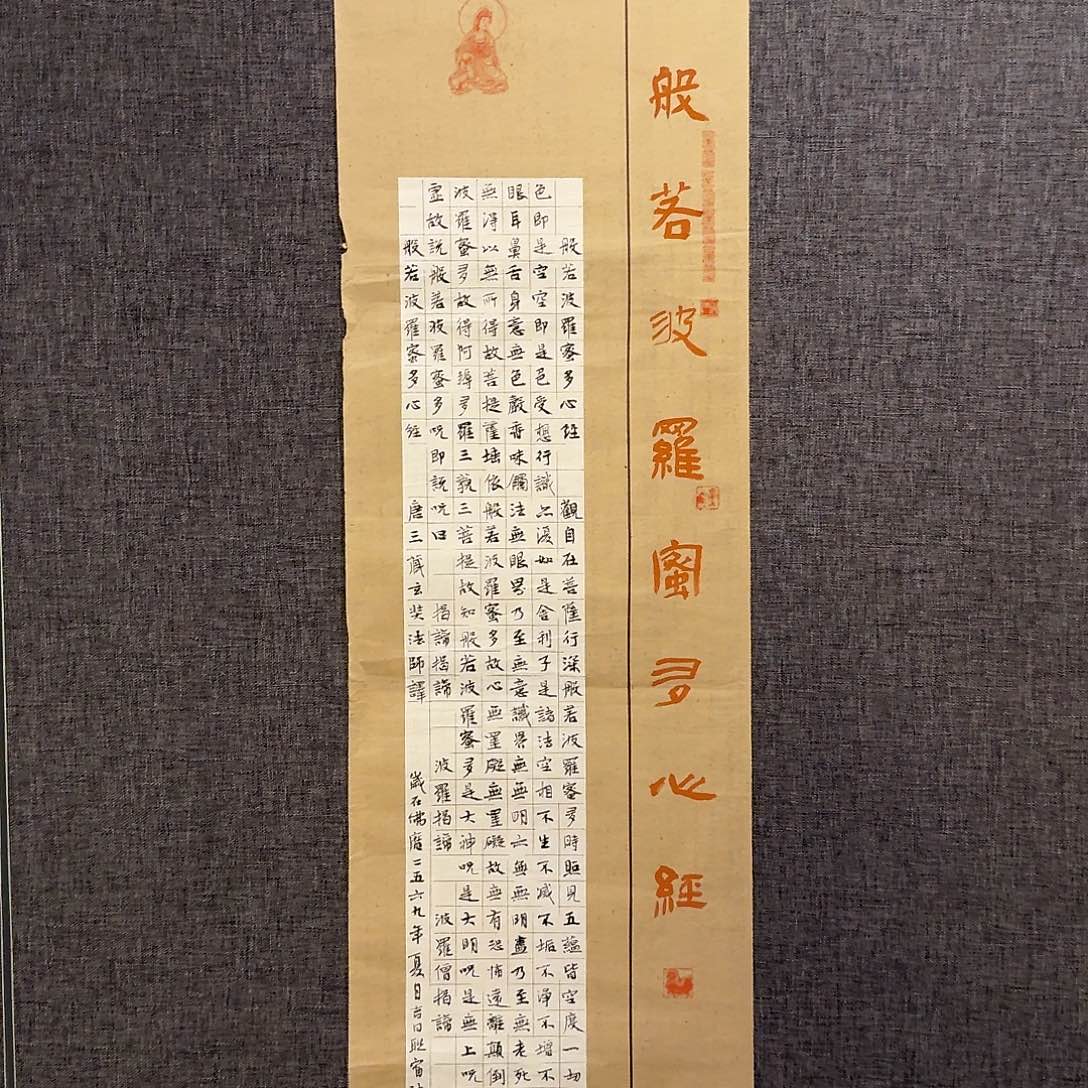 般若波羅蜜多心經
般若波羅蜜多心經 觀自在菩薩行深般若波羅蜜多時照見五蘊皆空度一切
色即是空空即是色受想行識亦復如是舍利子是諸法空相不生不滅不垢不淨不增不
眼耳鼻舌身意無色聲香味觸法無眼界乃至無意識界無無明亦無無明盡乃至無老死
無得以無所得故菩提薩埵依般若波羅蜜多故心無罣礙無罣礙故無有恐怖遠離顛倒
波羅蜜多故得阿耨多羅三藐三菩提故知般若波羅蜜多是大神呪是大明呪是無上呪
虛故說般若波羅蜜多呪即說呪曰 揭諦揭諦 波羅揭諦 波羅僧揭諦
般若波羅蜜多心經 唐三藏玄奘法師譯 歲在佛曆二五六九年夏月吉日